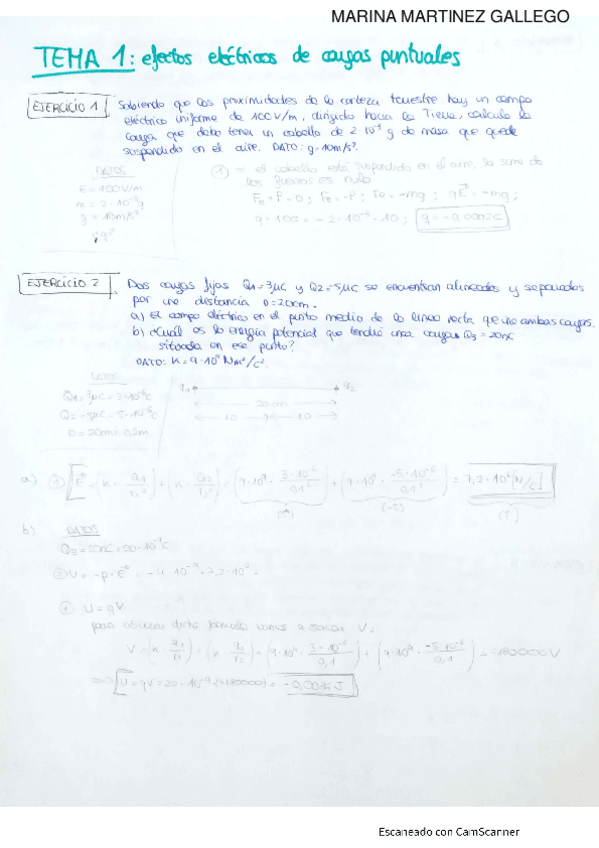 MARINA MARTINEZ GALLEGO
TEMA 1: efectos eléctricos de cargas puntuales
EJERCICIO 1
Sabiendo que las proximidades de la corteza terrestre hay un campo
eléctrico uniforme de 100 V/m, dirigido hacia la Tierra, calcula la
carga que debe tener un cabello de 2·10⁻³ g de masa que quede
suspendido en el aire. DATO: g=10m/s².
DATOS
E = 100 V/m
m = 2·10⁻³g
g = 10m/s²
① el cabello está suspendido en el aire, la suma de
las fuerzas es nula
Fe+P=0; Fe=-P; Fe=-mg; qE=-mg;
q·100 = -2·10⁻³·10; q=-0,0002C
EJERCICIO 2
Dos cargas fijas Q1=3μC y Q2=5μC se encuentran alineadas y separadas
por una distancia D=20cm.
a) El campo eléctrico en el punto medio de la línea recta que une ambas cargas.
b) ¿Cuál es la energía potencial que tendría una cargas Q3=20nC
situada en ese punto?
DATO: K=9·10⁹ Nm²/C².
Q1=3μC=3·10⁻⁶C
Q2=-5μC=5·10⁻⁶C
D=20cm=0,2m
q1 q2
20cm
10 10
a) E = (K·q1/r1²)+(K·q2/r2²)=(9·10⁹·3·10⁻⁶/0,1²)+(9·10⁹·-5·10⁻⁶/0,1²)= 7,2·10⁶[N/C]
b) DATOS
U=-p·E
① U=qV
para utilizar dicha fórmula vamos a sacar V.
V=(K·q1/r1)+(K·q2/r2)=(9·10⁹·3·10⁻⁶/0,1)+(9·10⁹·-5·10⁻⁶/0,1)=-180000V
U=qV=20·10⁻⁹·(-180000)=-0,0036J
Escaneado con CamScanner